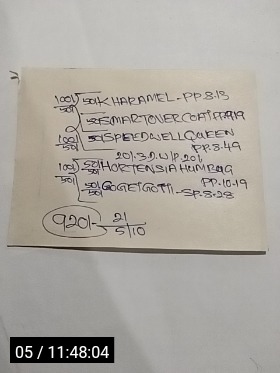 100/50 50/ KHARAMEL - PP.8.13
50/ SMARTOVERCOAT
100/50 50/ SPEEDWELL QUEEN
PP.8.49
20/- 3.D.W/P.20/-
100/50 50/50 HORTENSIA HUMBUG
PP.10.19
50/50 GOGETGOTII - SP.8.28
920/- 21
5/10
05 / 11:48:04